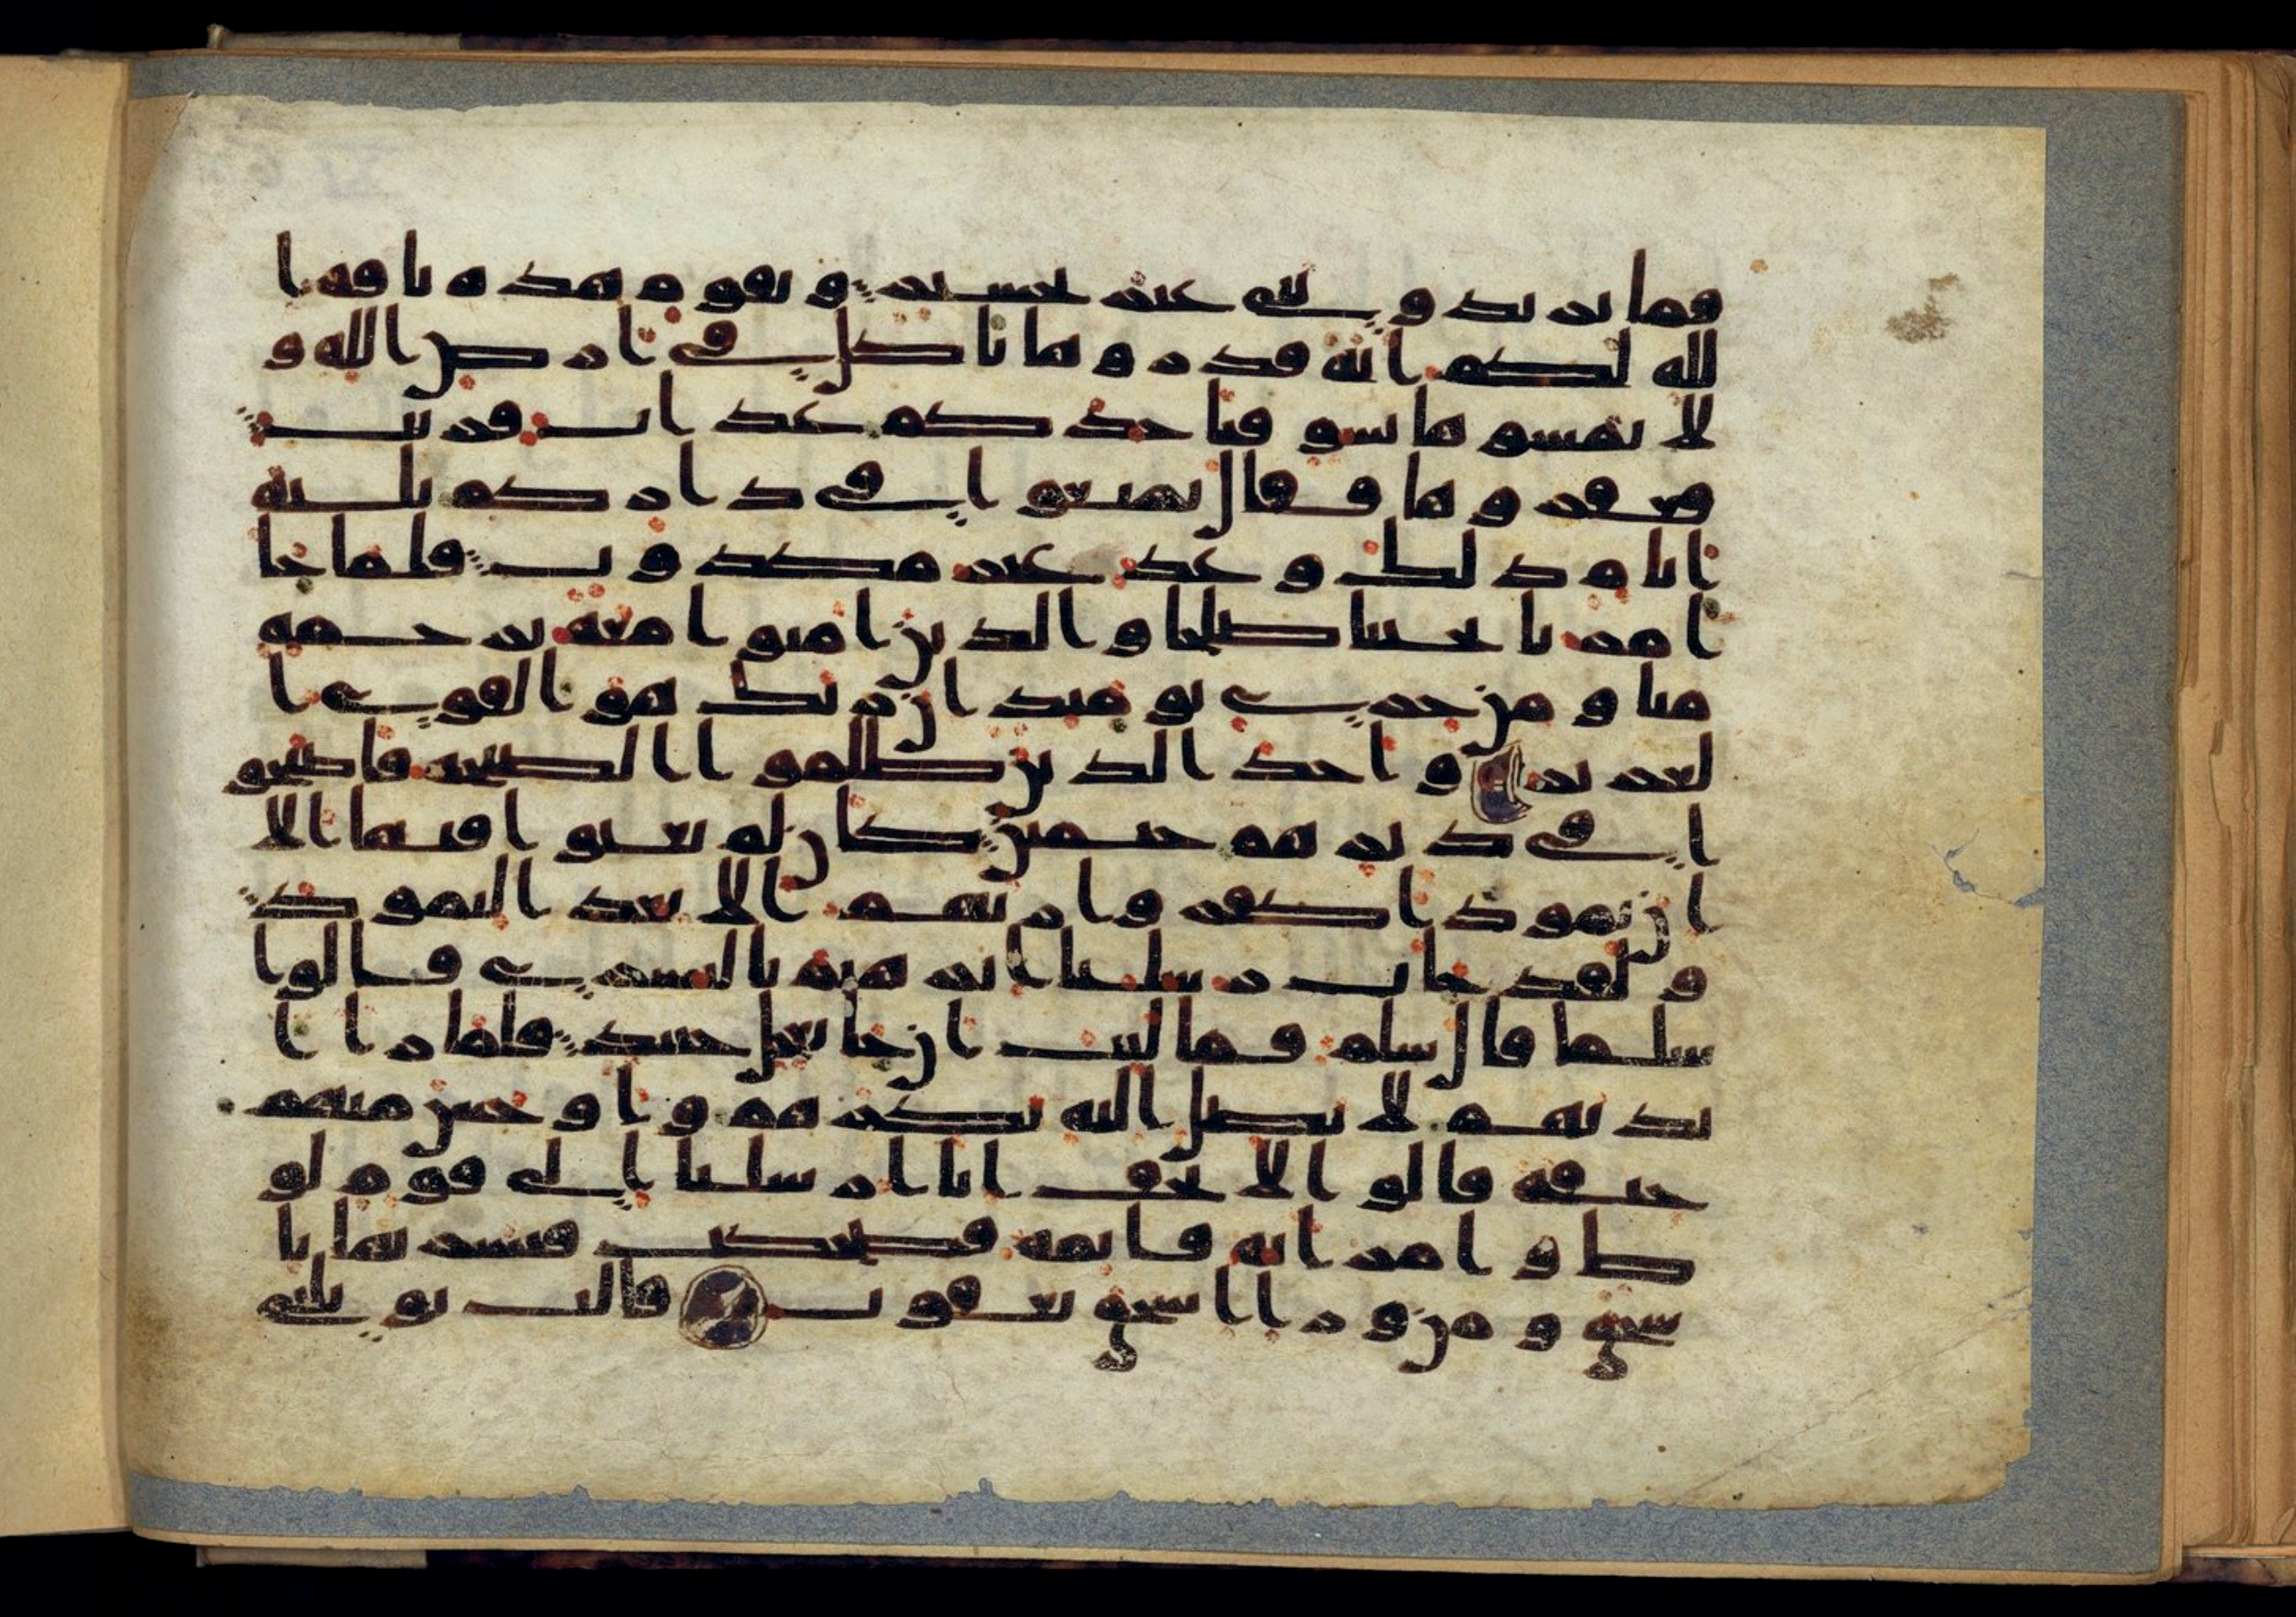 فما تزيدونني غير تخسير ويقوم هذه ناقة ا
لله لكم اية فذروها تاكل في ارض الله و
لا تمسوها بسو فياخذكم عذاب قريب
فعقروها فقال تمتعوا في داركم ثلثة
ايام ذلك وعد غير مكذوب فلما جا
امرنا نجينا صلحا والذين امنوا معه برحمة
منا ومن خزي يومئذ ان ربك هو القوي ا
لعزيز واخذ الذين ظلموا الصيحة فاصبحو
ا في ديرهم جثمين كان لم يغنوا فيها الا
ان ثمودا كفروا ربهم الا بعدا لثمود
ولقد جات رسلنا ابرهيم بالبشرى قالوا
سلما قال سلم فما لبث ان جا بعجل حنيذ فلما را ا
يديهم لا تصل اليه نكرهم واوجس منهم
خيفة قالوا لا تخف انا ارسلنا الى قوم لو
ط وامراته قائمة فضحكت فبشرنها با
سحق ومن ورا اسحق يعقوب قالت يويلتى